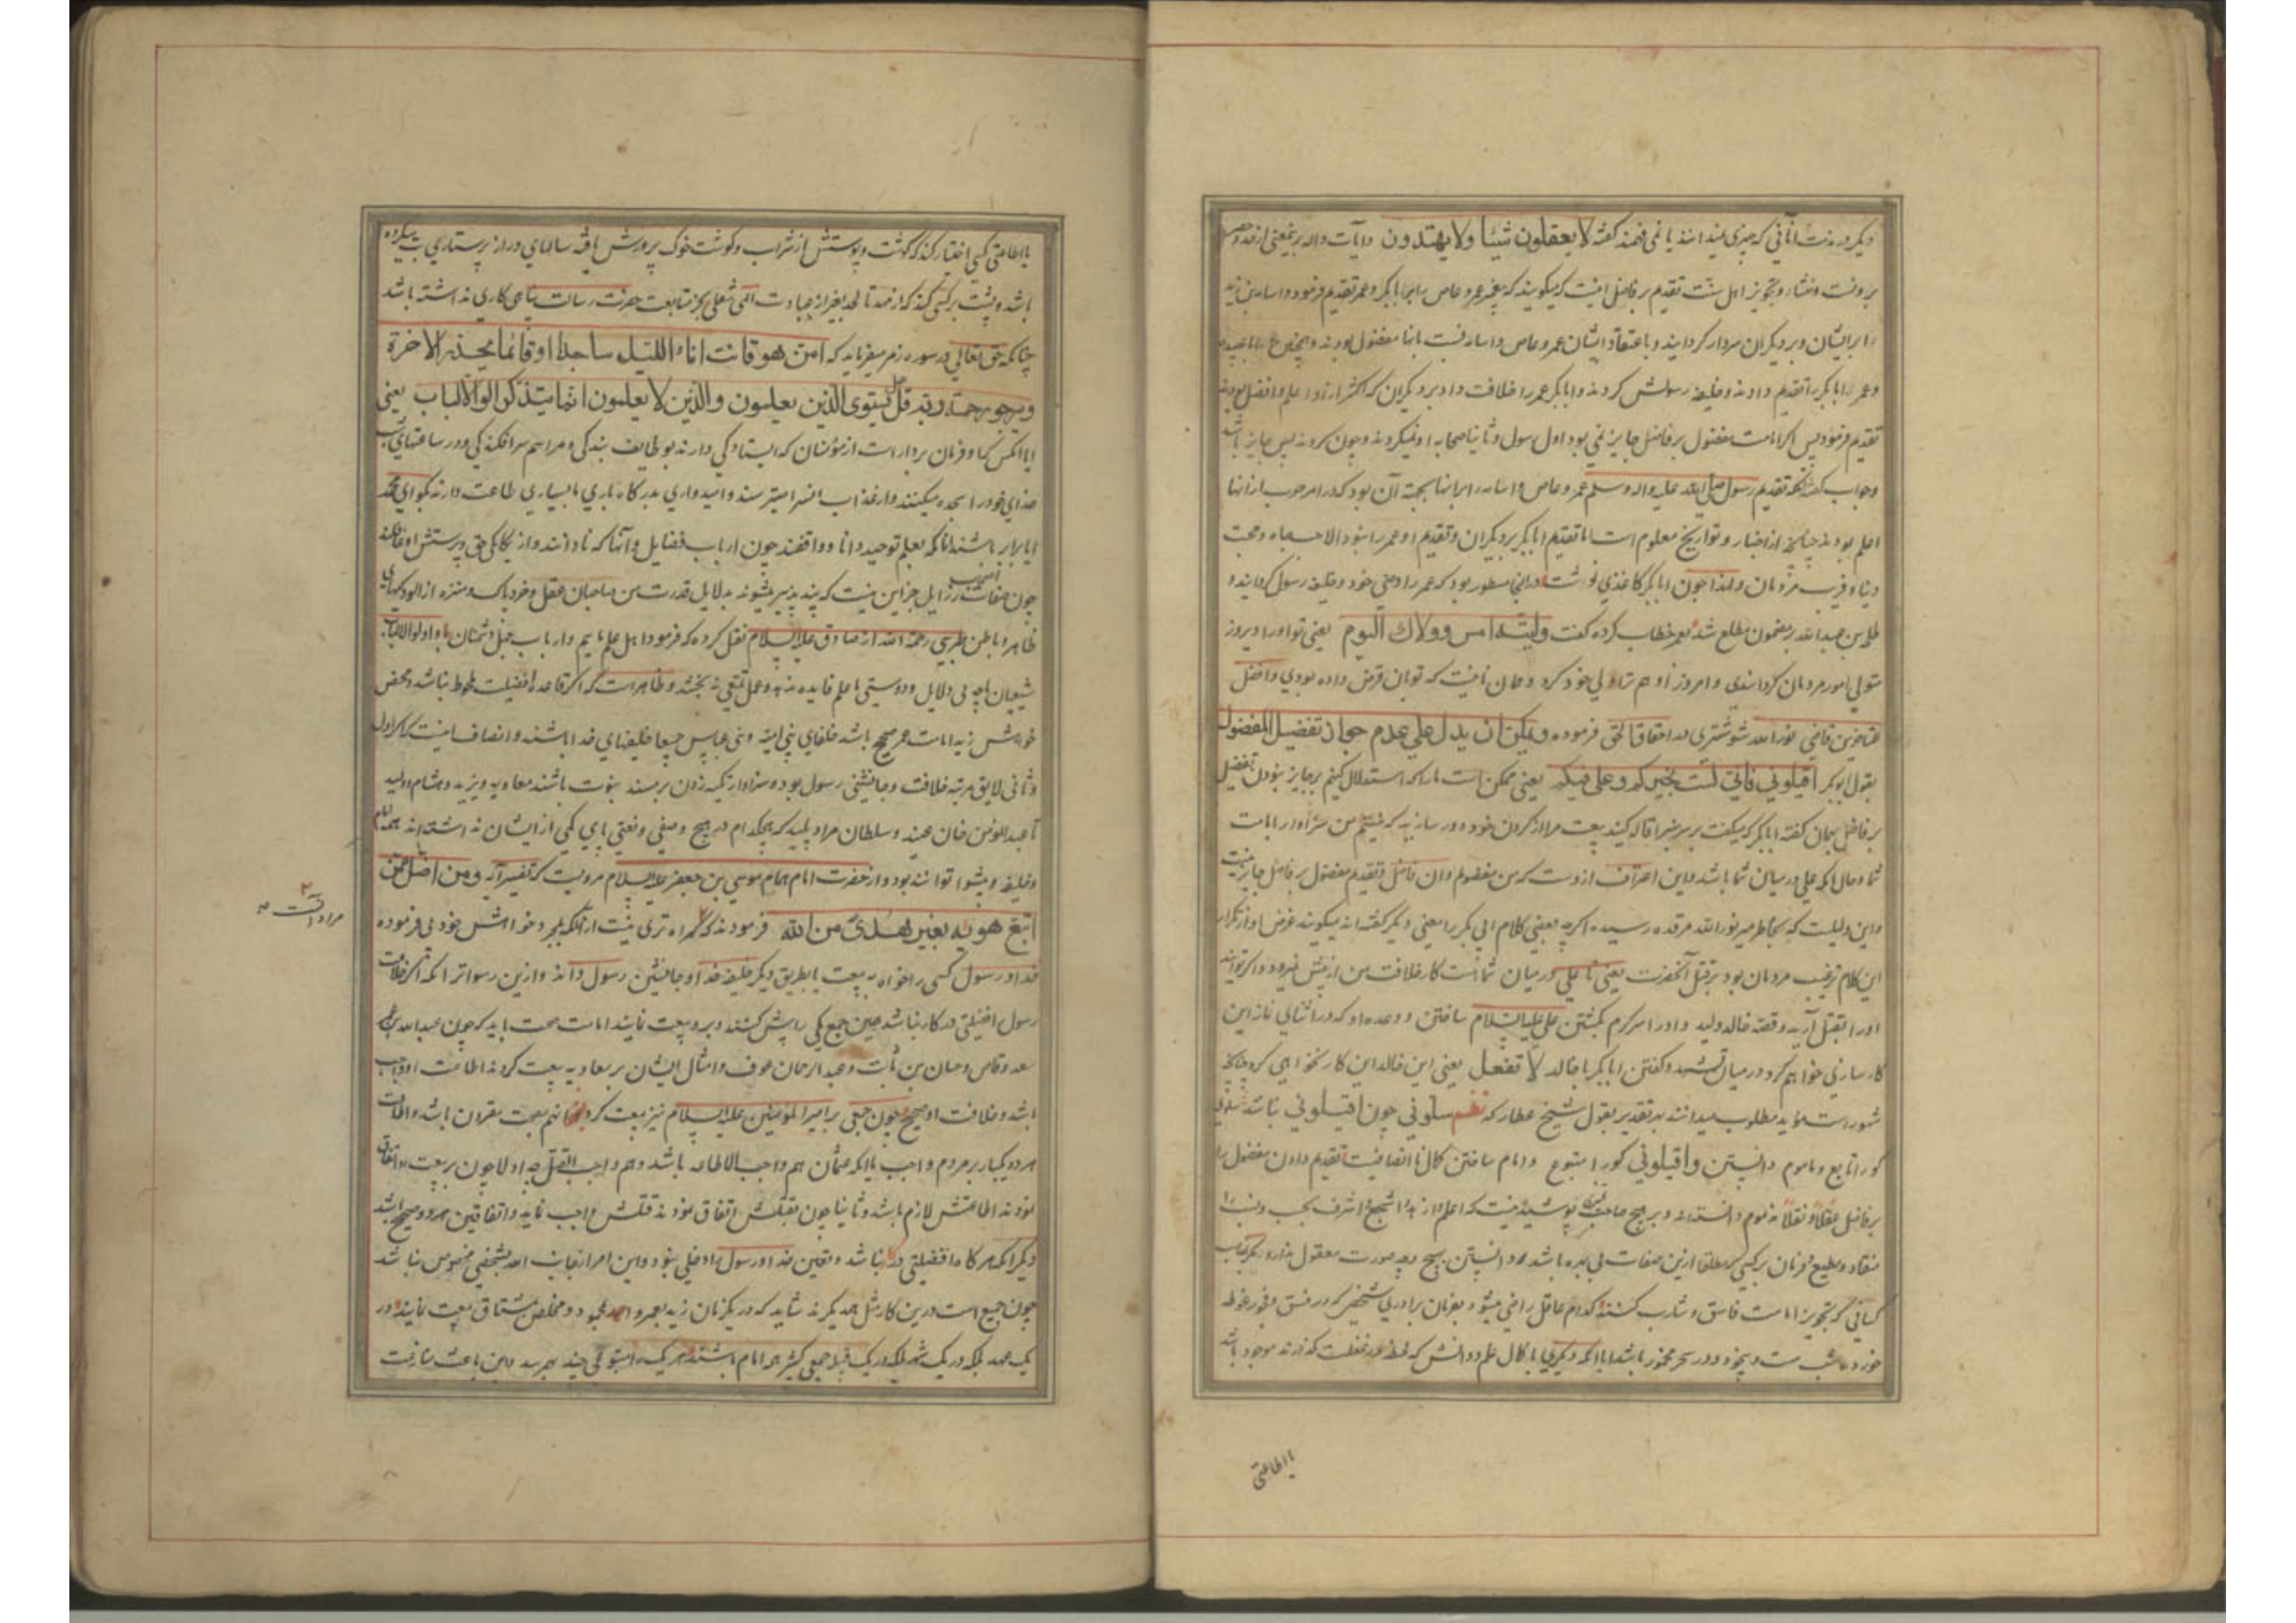 دیگر در مذمت آنانی که چیزی نمیدانند یا نمی فهمند گفته لا یعقلون شیئا ولا یهتدون وآیات داله برینمعنی از
تجویز اهل سنت تقدیم بر فاضل اینست که میگویند که پیغمبر عمرو عاص را بر ابابکر و عمر تقدیم فرمود و اسامة بن زید
را بر ایشان و بر دیگران سردار گردانید و باعتقاد ایشان عمرو عاص و اسامه نسبت بانها مفضول بودند
وعمر ابابکر را تقدیم دادند و خلیفه رسولش کردند و ابابکر عمر را خلافت داد بر دیگران که اکثر از او اعلم و افضل بودند
تقدیم فرمود پس اگر امامت مفضول بر فاضل جایز نمی بود اول رسول و ثانیا صحابه او نمیکردند و چون کردند پس جایز باشد
وجواب گفته‌اند که تقدیم رسول صلی الله علیه واله وسلم عمرو عاص و اسامه را بر انها بجهة آن بود که در امر حرب از انها
اعلم بودند چنانچه از اخبار و تواریخ معلوم است اما تقدیم ابابکر بر دیگران و تقدیم او عمر را نبود الا حب جاه و محبت
دنیا و فریب مردمان ولهذا چون ابابکر کاغذی نوشت در انجا مسطور بود که عمر را وصی خود و خلیفه رسول گردانیدم
طلحة بن عبدالله بر مضمون مطلع شد بعمر خطاب کرده گفت ولیته امس وولاك الیوم یعنی تو او را دیروز
متولی امور مردمان گردانیدی و امروز او هم ترا ولی خود کرد و همان نامیست که توبان قرض داده بودی وافضل
المتاخرین قاضی نورالله شوشتری در احقاق الحق فرموده ویمکن ان یدل علی عدم جواز تفضیل المفضول
بقول ابوبکر اقیلونی فانی لست بخیرکم وعلی فیکم یعنی ممکن است ما را که استدلال کنیم بر جایز نبودن تفضیل
بر فاضل بهمان گفته ابابکر که میگفت بر سر منبر اقاله کنید بیعت مرا از گردن خود دور سازید که نیستم من سزاوار امامت
شما وحال انکه علی در میان شما باشد واین اعترافست از وست که من مفضولم وان فاضل وتقدیم مفضول بر فاضل جایز نیست
واین دلیلست که بخاطر میر نورالله مرقده رسیده اگرچه بعضی کلام ابی بکر را معنی دیگر گفته اند میگویند غرض او از تکرار
این کلام ترغیب مردمان بود بر قتل آنحضرت یعنی تا علی در میان شما است کار خلافت من از پیش نمیرود و اگر توانید
او را بقتل آرید وقصه خالد ولید و او را سرگرم بکشتن علی علیه السلام ساختن ووعده او که در اثنای نماز این
کار سازی خواهم کرد و در میان تشهد گفتن ابابکر با خالد لا تفعل یعنی این خالد این کار نخواهی کرد چنانچه
مشهور است مؤید مطلوب میدانند بر تقدیر بقول شیخ عطار که نظم سلونی چون اقیلونی نباشد
کو را تابع و ماموم دانستن واقیلونی کو را متبوع وامام ساختن کمال نا انصافیست تقدیم دادن مفضول را
بر فاضل عقلا ونقلا مذموم دانسته اند و بر هیچ صاحب پوشیده نیست که اعلم وازهد واشجع واشرف بحسب ونسب را
منقاد ومطیع فرمان بر کسی که مطلقا ازین صفات بی بهره باشد دانستن بهیچ وجه صورت معقول ندارد
کسانی که تجویز امامت فاسق وشارب کنند کدام عاقل راضی میشود بفرمان برادری شخصی که در فسق وفجور غوطه
خورده شب مست وبیخود ودر سحر مخمور باشد
یا اطاعتی
یا اطاعتی کسی اختیار کند که گوشت وپوستش از شراب وگوشت خوک پرورش یافته سالهای دراز پرستاری بت میکرده
باشد وپشت بر کسی کند که از مهد تا لحد بغیر از عبادت الهی شغلی وبجز متابعت حضرت رسالت پناهی کاری نداشته باشد
چنانکه حق تعالی در سوره زمر میفرماید که امن هو قانت اناء اللیل ساجدا اوقائما یحذر الاخرة
ویرجو رحمة ربه قل هل یستوی الذین یعلمون والذین لا یعلمون انما یتذکر اولوا الالباب یعنی
ایا انکس که او فرمان بردار است از مؤمنان که ایستادگی دارند بوظایف بندگی ومراسم سرافکندگی ودر ساعتهای شب
خدای خود را سجده میکنند واز عذاب اخرة میترسند وامیدواری بدرگاه باری با بسیاری طاعت دارند بگو ای محمد
ایا برابر باشند انانکه بعلم توحید دانا وواقفند چون ارباب فضایل وآنها که نادانند واز یگانگی حق وپرستش او غافلند
چون اصحاب صفات رذایل جز این نیست که پند پذیر میشوند بدلایل قدرت من صاحبان عقل وخرد پاک ومنزه از الودگیهای
ظاهر وباطن طبرسی رحمة الله از صادق علیه السلام نقل کرده که فرمود اهل علم ماییم وارباب جهل دشمنان ما واولوا الالباب
شیعیان ما چه بی دلایل ودوستی ما علم فایده ندهد وعمل نفعی نه بخشد وظاهر است که اگر قاعده افضلیت ملحوظ نباشد ومحض
خواهش زید امامت عمر صحیح باشد خلفای بنی امیه وبنی عباس جمیعا خلیفهای خدا باشند وانصاف اینست که اگر اول
وثانی لایق مرتبه خلافت وجانشینی رسول بود وسزاوار تکیه زدن بر مسند نبوت باشند معاویه ویزید وهشام وولید
تا عبدالمؤمن خان وسلطان مراد پلید که هیچکدام در هیچ وصفی ونعتی پای کمی از ایشان نداشته اند همه امام
وخلیفه وپیشوا توانند بود واز حضرت امام همام موسی بن جعفر علیه السلام مرویست که تفسیر آیه ومن اضل ممن
اتبع هویه بغیر هدی من الله فرمودند که گمراه تری نیست از آنکه بمجرد خواهش خود بی فرموده
مراد آنست
خدا ورسول کسی را خواه به بیعت یا بطریق دیگر خلیفه خدا وجانشین رسول داند وازین رسواتر انکه اگر خلافت
رسول افضلیتی در کار نباشد وهمین جمع یکی را پیش کنند وبر وبیعت نمایند امامت صحت یابد که چون عبدالله بن عمر
سعد وقاص وحسان بن ثابت وعبدالرحمان عوف وامثال ایشان بر معاویه بیعت کردند اطاعت او واجب
باشد وخلافت او صحیح وچون جمعی بر امیرالمؤمنین علیه السلام نیز بیعت کردند انهم بصحت مقرون باشد واطاعت
هر دو یکبار بر مردم واجب یا انکه عثمان هم واجب الاطاعه باشد وهم واجب القتل چه اولا چون بر بیعت او اتفاق
نمودند اطاعتش لازم باشد وثانیا چون بقتلش اتفاق نمودند قتلش واجب نماید واتفاقین هر دو صحیح باشد
دیگر انکه هر گاه افضلیتی در کار نباشد وتعیین خدا ورسول را دخلی نبود واین امر از جانب الله بشخصی مخصوص نباشد
چون جمیع است درین کار مثل همدیگرند شاید که در یکزمان زید بعمرو واحمد بمحمود ومخلص بمشتاق بیعت نمایند ودر
یک عهد بلکه در یک شهر بلکه در یک قبیله جمعی کثیر همه امام باشند